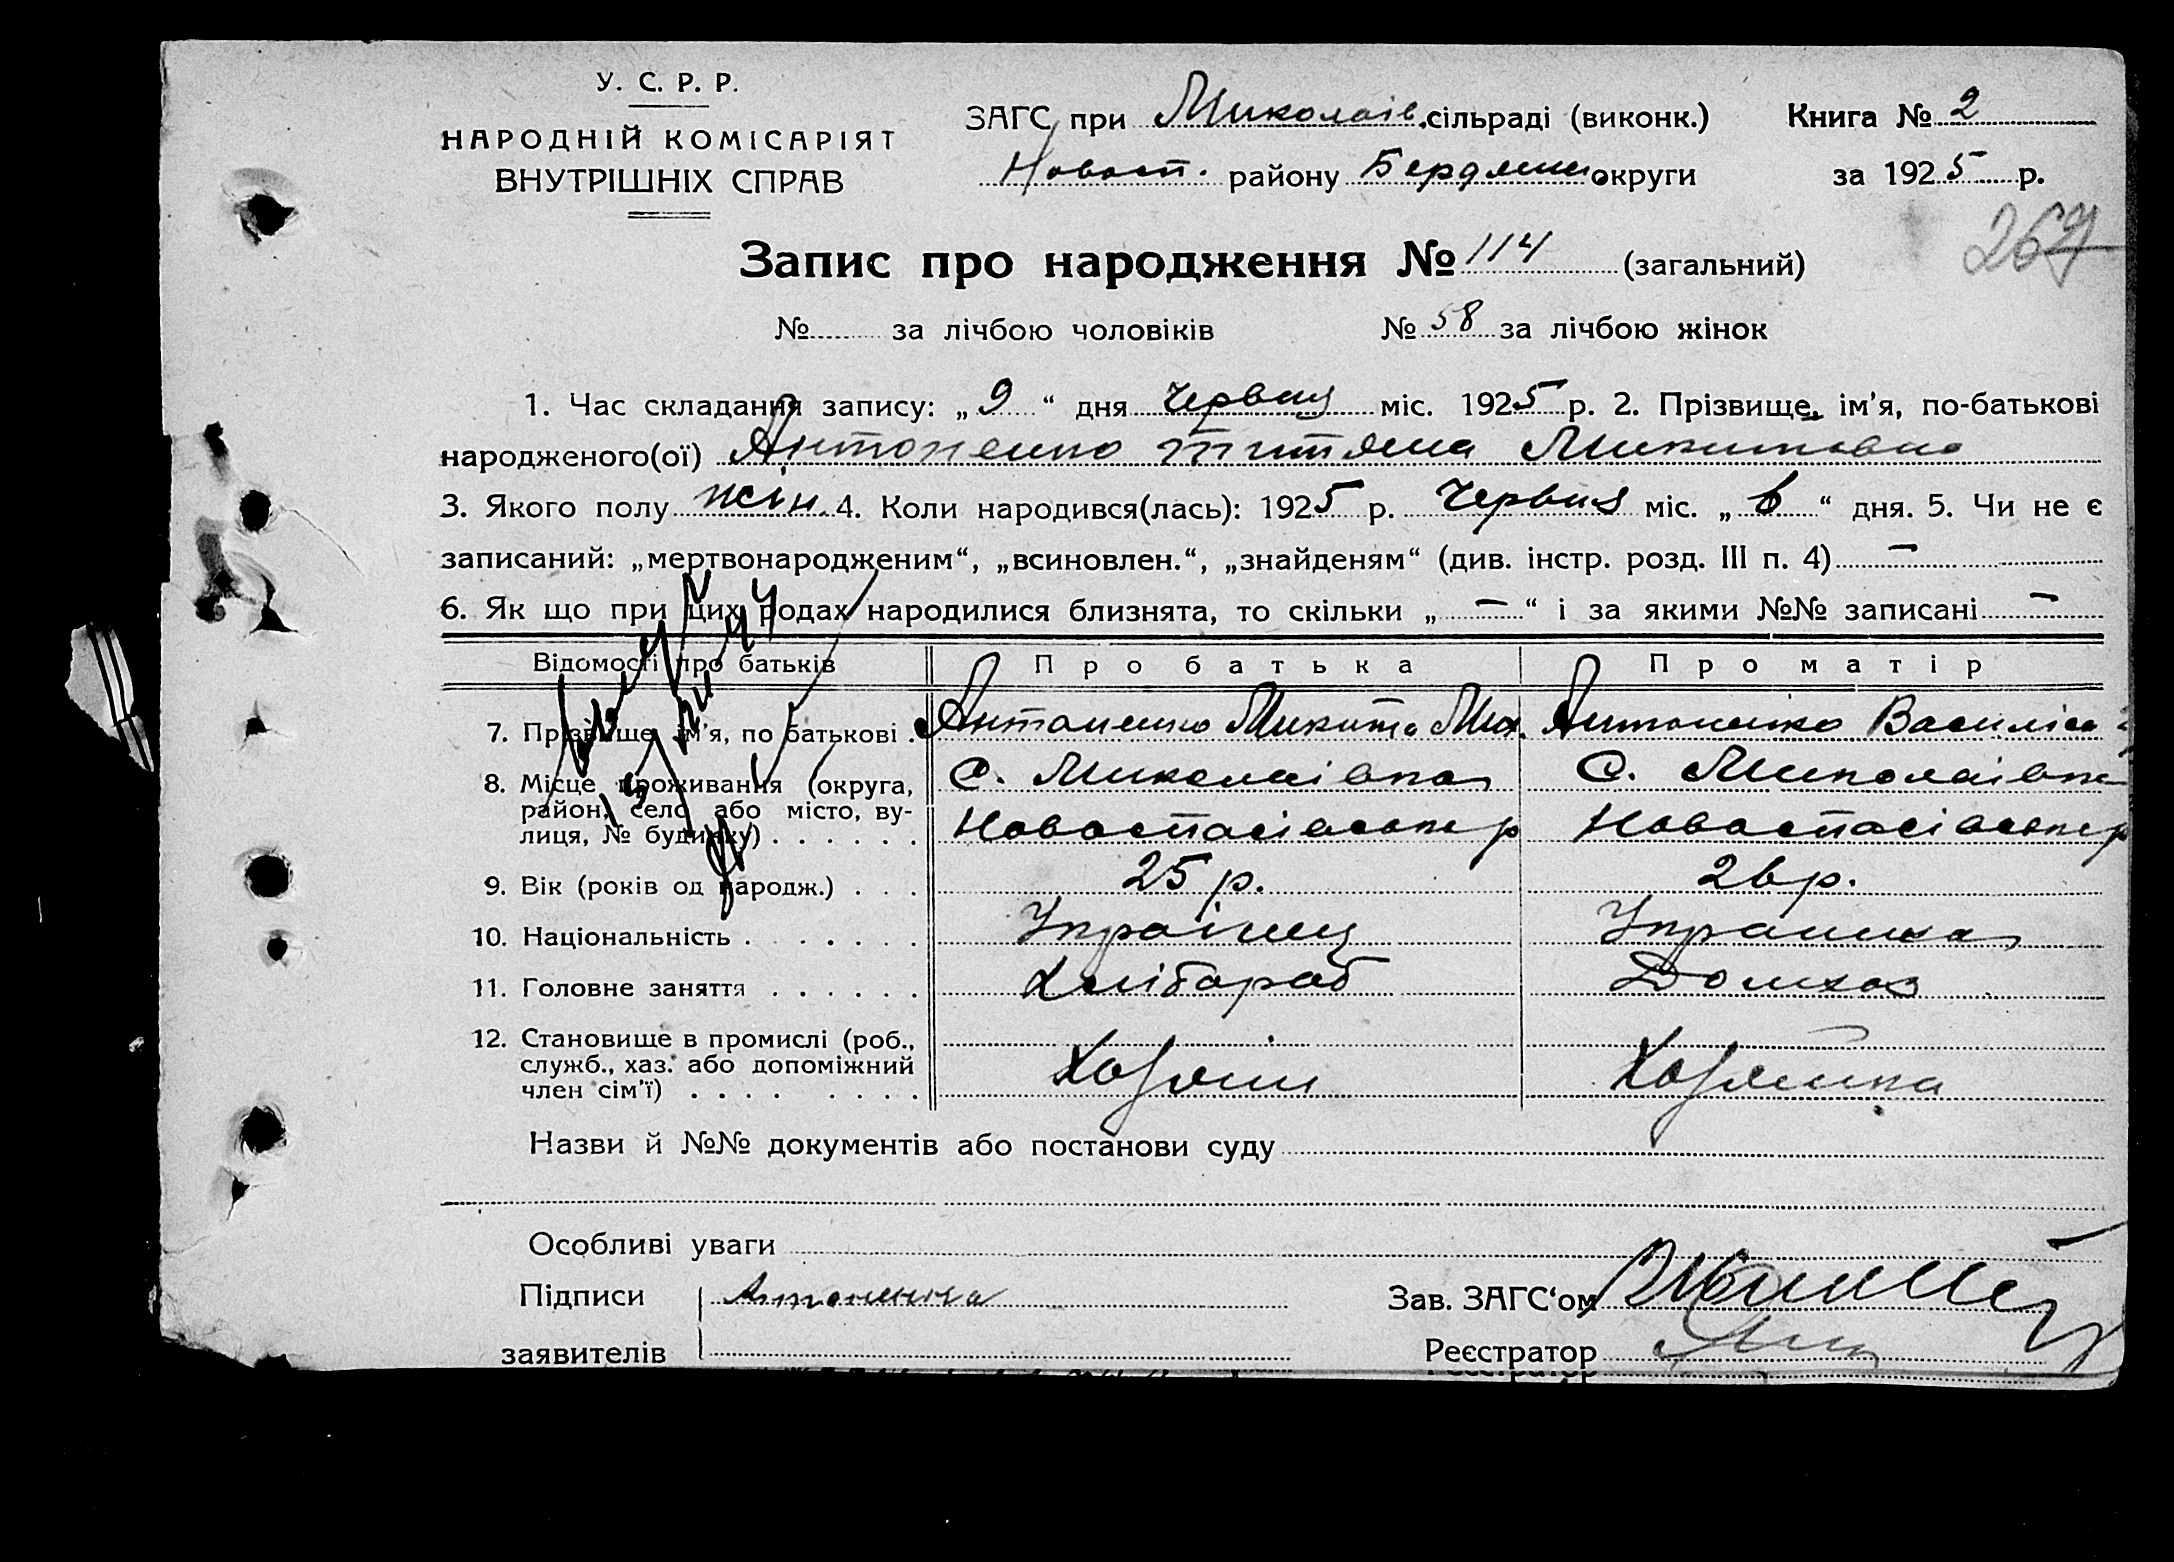 У. С. Р. Р.
НАРОДНІЙ КОМІСАРІЯТ
ВНУТРІШНІХ СПРАВ
ЗАГС при Миколаїв. сільраді (виконк.) Книга № 2
Новосп. району Бердянськ округи за 1925 р.
267
Запис про народження № 114 (загальний)
№ за лічбою чоловіків № 58 за лічбою жінок
1. Час складання запису: „ 9 “ дня Червня міс. 1925 р. 2. Прізвище, ім’я, по-батькові
народженого(ої) Антоненко Титяна Микитовна
3. Якого полу жін. 4. Коли народився(лась): 1925 р. Червня міс. „ 6 “ дня. 5. Чи не є
записаний: „мертвонародженим“, „всиновлен.“, „знайденям“ (див. інстр. розд. III п. 4) —
6. Як що при цих родах народилися близнята, то скільки „ — “ і за якими №№ записані —
Відомості про батьків Про батька Про матір
7. Прізвище, ім’я, по батькові . Антоненко Микита Мих. Антоненко Василіса
8. Місце проживання (округа, район, село або місто, вулиця, № будинку) . . . . . . С. Миколаівка С. Миколаівка
Новоспасівськ р Новоспасівськ р
9. Вік (років од народж.) . . . 25 р. 26 р.
10. Національність . . . . . . . Украінец Украинка
11. Головне заняття . . . . . . Хлібороб Домхоз
12. Становище в промислі (роб.,
служб., хаз. або допоміжний
член сім’ї) . . . . . . . . Хазяин Хазяйка
Назви й №№ документів або постанови суду
Особливі уваги
Підписи Антоненко Зав. ЗАГС‘ом
заявителів Реєстратор